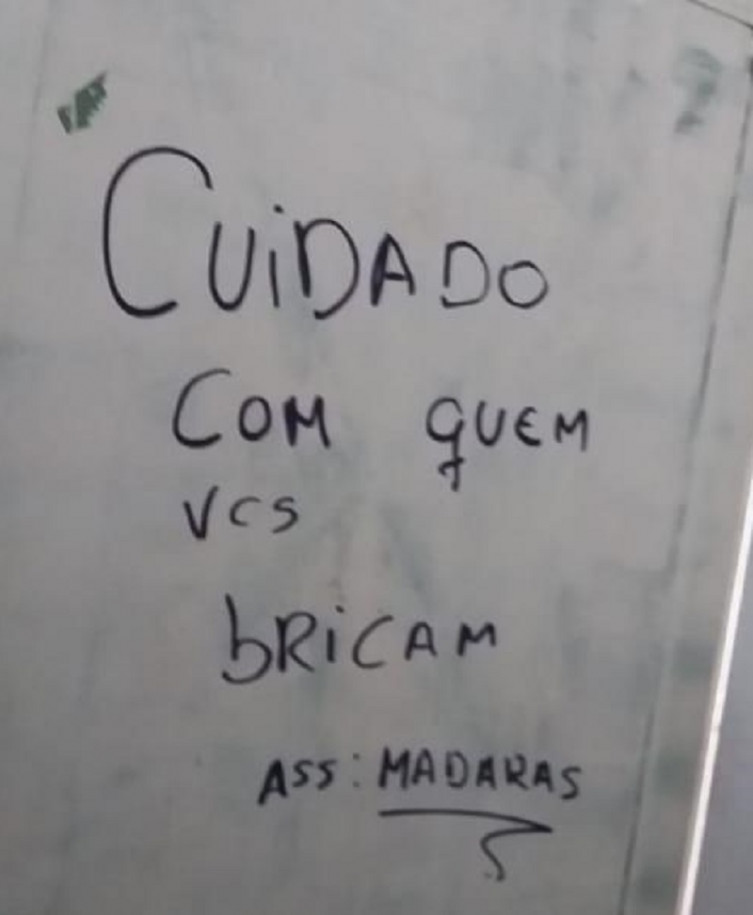 CUiDADO
COM QUEM
VCS
bRiCAM
ASS: MADARAS